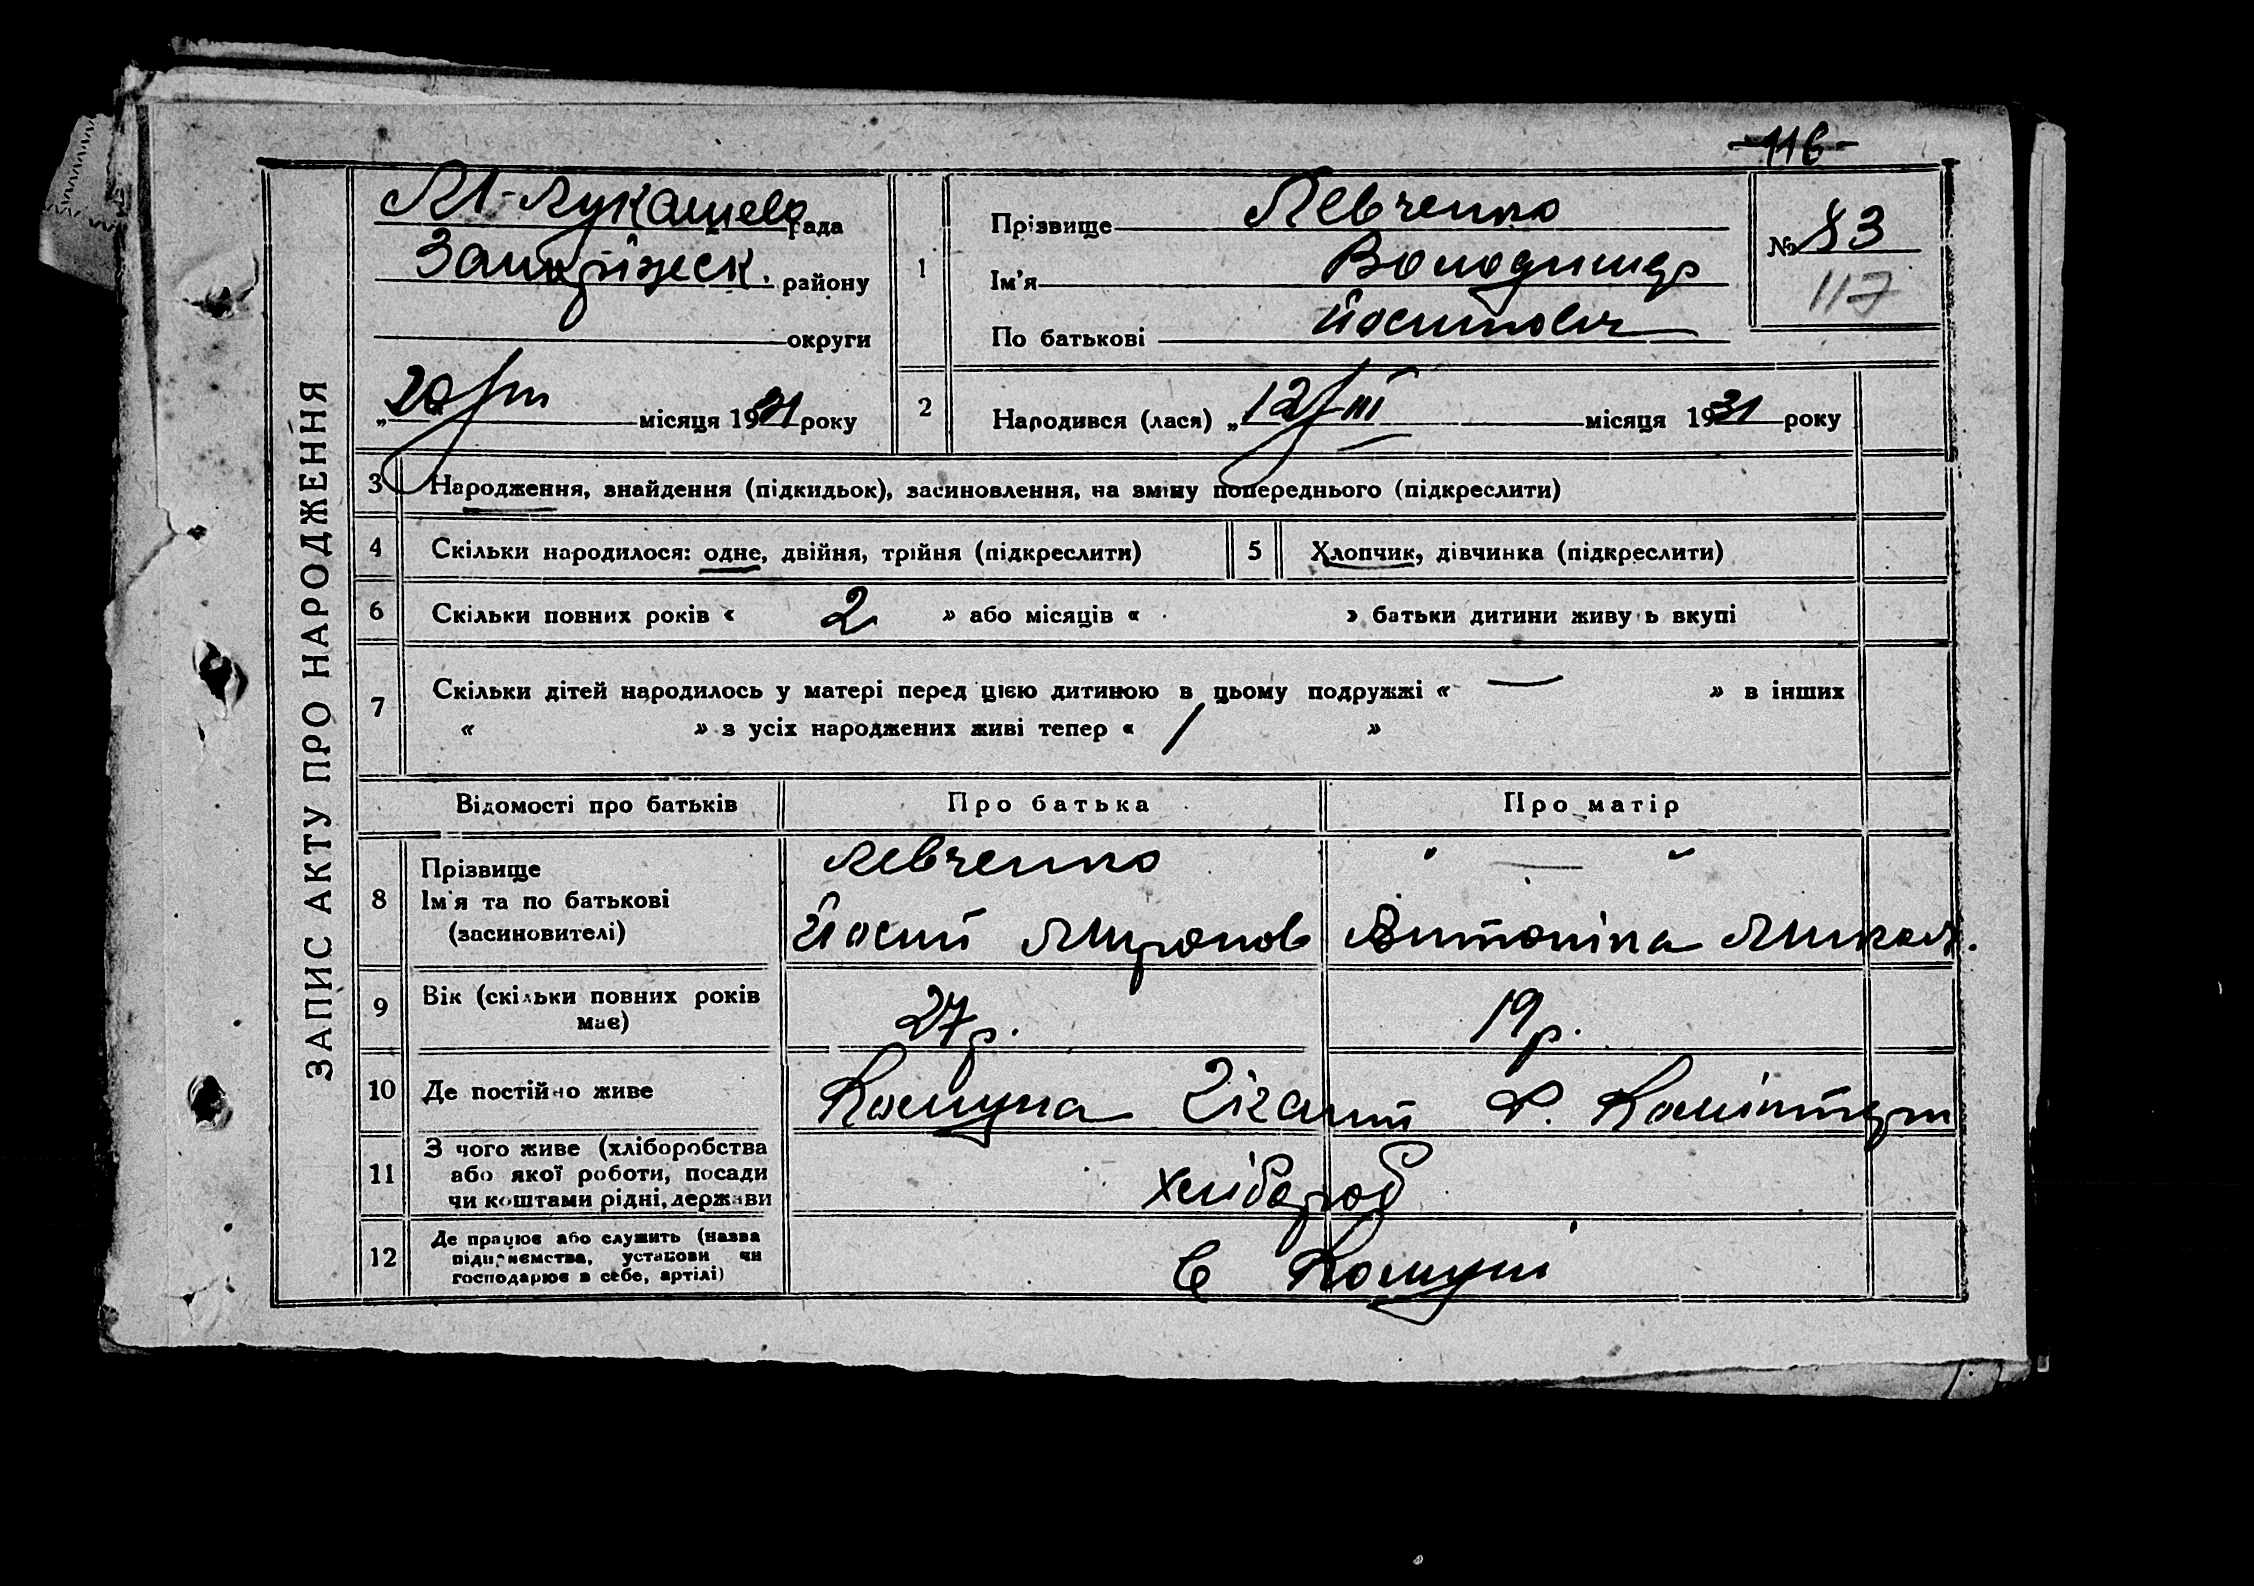 116
ЗАПИС АКТУ ПРО НАРОДЖЕННЯ
М-Лукашево рада
Запоріжеск. району
округи
„20/III місяця 1931 року
1
Прізвище Левченко
Ім'я Володимир
По батькові Йосипович
№ 83
117
2
Народився (лася) „12/III місяця 1931 року
3 Народження, знайдення (підкидьок), засиновлення, на зміну попереднього (підкреслити)
4 Скільки народилося: одне, двійня, трійня (підкреслити)
5 Хлопчик, дівчинка (підкреслити)
6 Скільки повних років « 2 » або місяців « » батьки дитини живуть вкупі
7 Скільки дітей народилось у матері перед цією дитиною в цьому подружжі « — » в інших
« » з усіх народжених живі тепер « / »
Відомості про батьків Про батька Про матір
8 Прізвище
Ім'я та по батькові
(засновителі)
Левченко " — "
Йосип Миронов Антоніна Микол.
9 Вік (скільки повних років
має)
27 р. 19 р.
10 Де постійно живе Комуна Гігант Комінтерн
11 З чого живе (хліборобства
або якої роботи, посади
чи коштами рідні, держави
хлібороб
12 Де працює або служить (назва
підприємства, установи чи
господарює в себе, артілі)
в Комуні